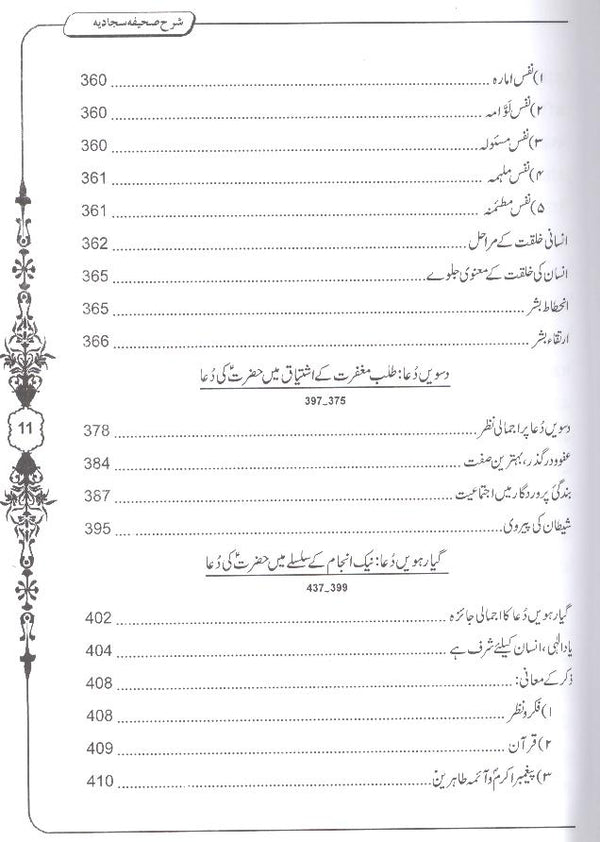 شرح صحیفہ سجادیہ
۱) نفس امارہ ........ 360
۲) نفس لوّامہ ........ 360
۳) نفس مسئولہ ........ 360
۴) نفس ملہمہ ........ 361
۵) نفس مطمئنہ ........ 361
انسانی خلقت کے مراحل ........ 362
انسان کی خلقت کے معنوی جلوے ........ 365
انحطاط بشر ........ 365
ارتقاء بشر ........ 366
دسویں دُعا: طلب مغفرت کے اشتیاق میں حضرتؑ کی دُعا
397_375
دسویں دُعا پر اجمالی نظر ........ 378
عفو و درگذر، بہترین صفت ........ 384
بندگیٔ پروردگار میں اجتماعیت ........ 387
شیطان کی پیروی ........ 395
11
گیارہویں دُعا: نیک انجام کے سلسلے میں حضرتؑ کی دُعا
437_399
گیارہویں دُعا کا اجمالی جائزہ ........ 402
یاد الٰہی، انسان کیلئے شرف ہے ........ 404
ذکر کے معانی: ........ 408
۱) فکر و نظر ........ 408
۲) قرآن ........ 409
۳) پیغمبر اکرمؐ و آئمہ طاہرینؑ ........ 410